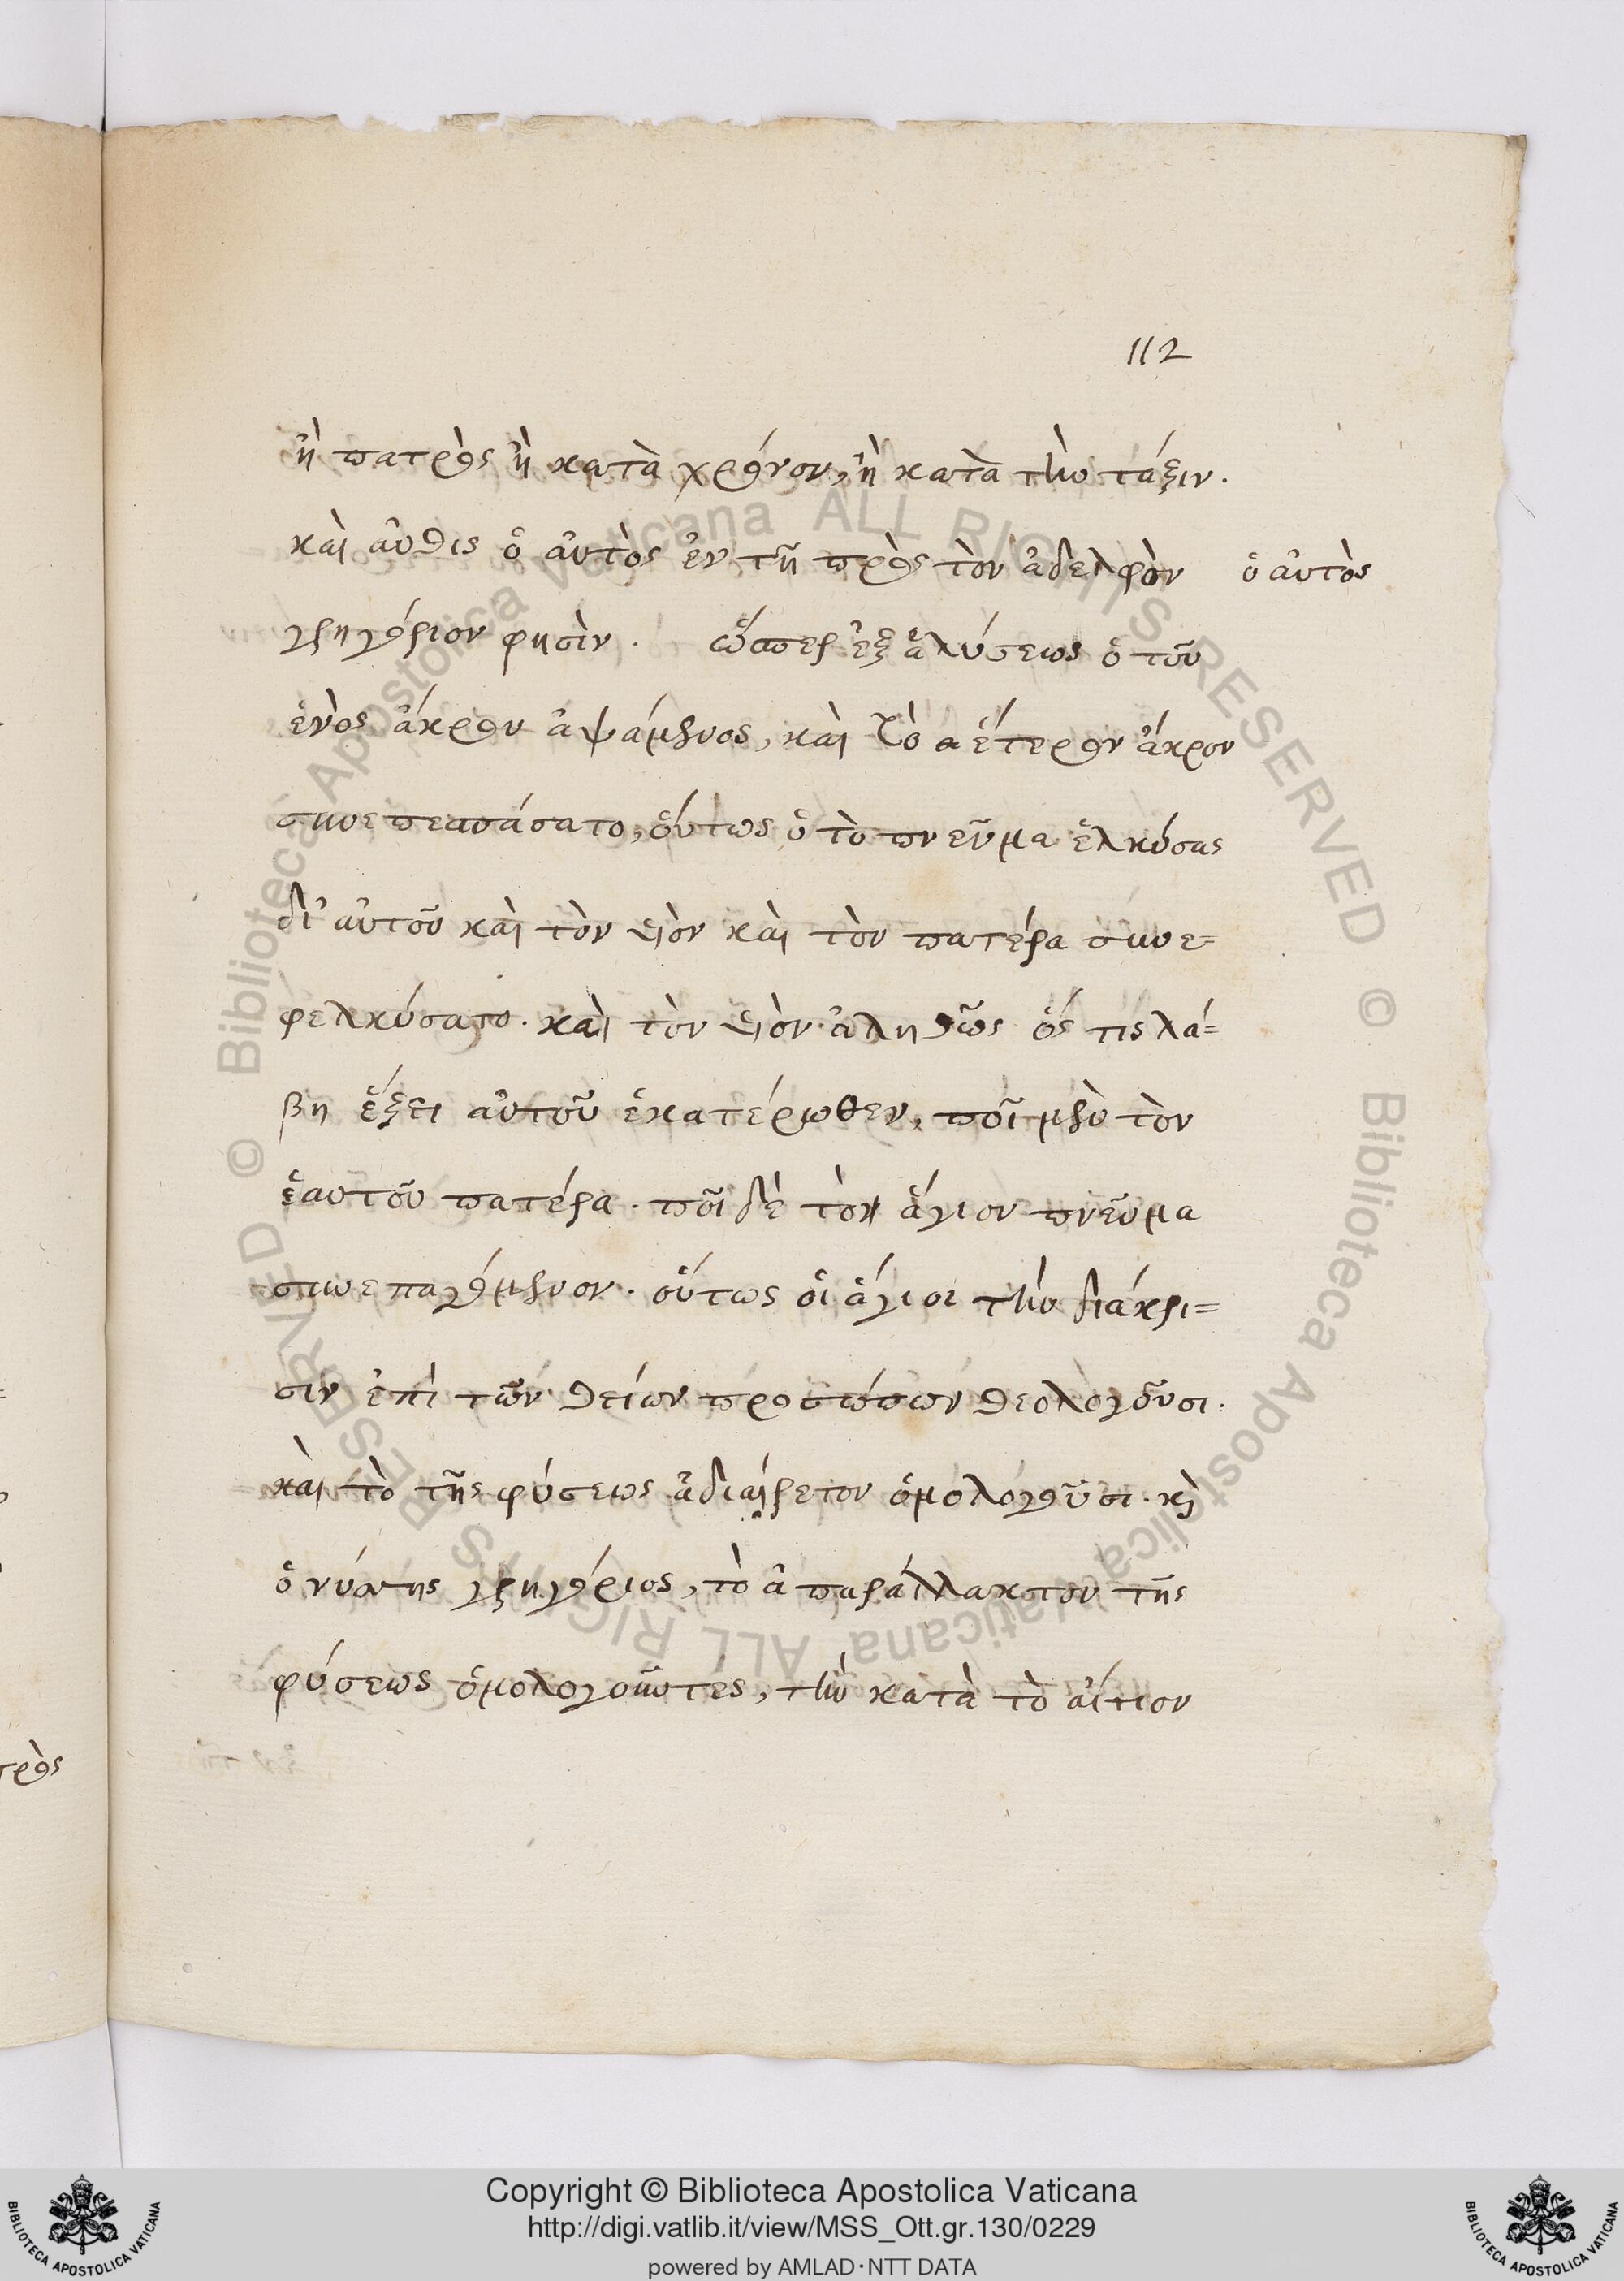 112
ἢ πατρὸς ἢ κατὰ χρόνον, ἢ κατὰ τὴν τάξιν.
καὶ αὖθις ὁ αὐτὸς ἐν τῇ πρὸς τὸν ἀδελφὸν
ὁ αὐτὸς
γρηγόριον φησὶν. ὥσπερ ἐξ ἁλύσεως ὁ τοῦ
ἑνὸς ἄκρου ἁψάμενος, καὶ τὸ ἕτερον ἄκρον
συνεπεσπάσατο, οὕτως ὁ τὸ πνεῦμα ἑλκύσας
δι' αὐτοῦ καὶ τὸν υἱὸν καὶ τὸν πατέρα συνε=
φελκύσατο. καὶ τὸν υἱὸν ἀληθῶς ὅς τις λά=
βη ἕξει αὐτοῦ ἑκατέρωθεν, ποῖ μὲν τὸν
ἑαυτοῦ πατέρα. ποῖ δὲ τὸ ἅγιον πνεῦμα
συνεπαγόμενον. οὕτως οἱ ἅγιοι τὴν διάκρι=
σιν ἐπὶ τῶν θείων προσώπων θεολογοῦσι.
καὶ τὸ τῆς φύσεως ἀδιαίρετον ὁμολογοῦσι. κὶ
ὁ νύσσης γρηγόριος, τὸ ἀπαράλλακτον τῆς
φύσεως ὁμολογοῦντες, τὴν κατὰ τὸ αἴτιον
τρὸς
Copyright © Biblioteca Apostolica Vaticana
http://digi.vatlib.it/view/MSS_Ott.gr.130/0229
powered by AMLAD·NTT DATA
BIBLIOTECA APOSTOLICA VATICANA
BIBLIOTECA APOSTOLICA VATICANA
© Biblioteca Apostolica Vaticana ALL RIGHTS RESERVED
© Biblioteca Apostolica Vaticana ALL RIGHTS RESERVED